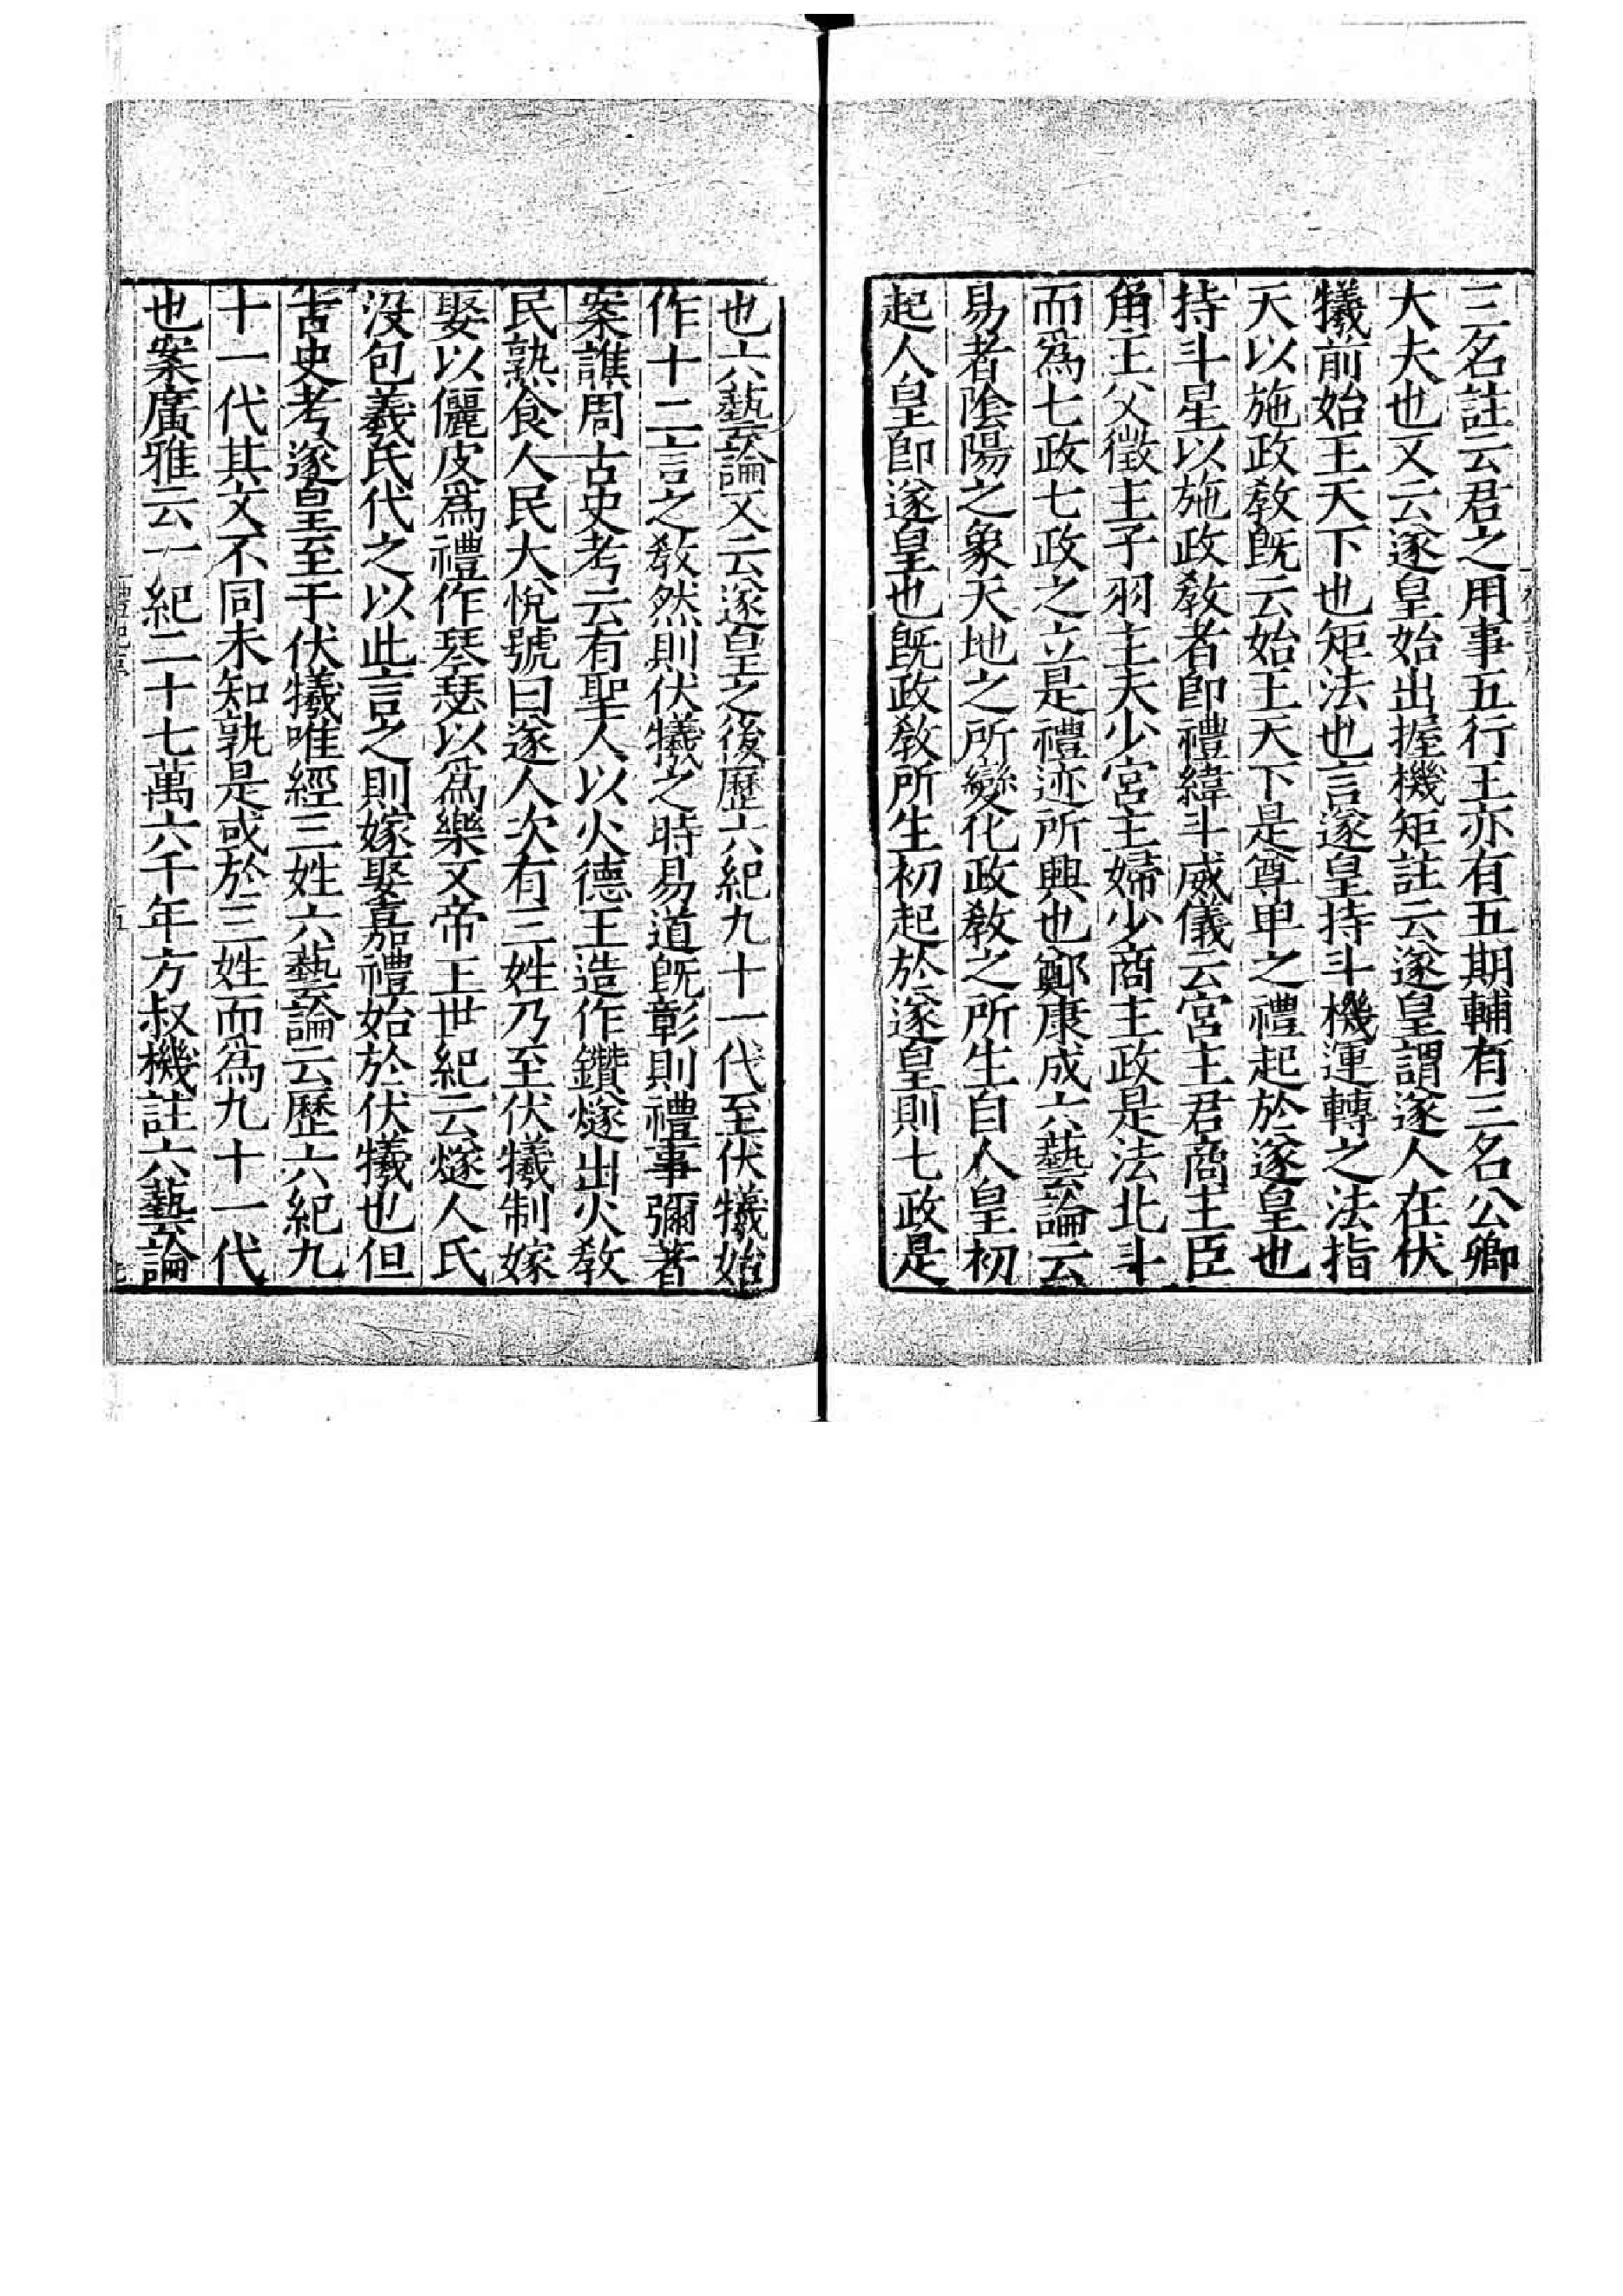 三名註云君之用事五行王亦有五期輔有三名公卿
大夫也又云遂皇始出握機矩註云遂皇謂遂人在伏
犧前始王天下也矩法也言遂皇持斗機運轉之法指
天以施政教旣云始王天下是尊卑之禮起於遂皇也
持斗星以施政教者卽禮緯斗威儀云宮主君商主臣
角主父徵主子羽主夫少宮主婦少商主政是法北斗
而爲七政七政之立是禮迹所興也鄭康成六藝論云
易者陰陽之象天地之所變化政教之所生自人皇初
起人皇卽遂皇也旣政教所生初起於遂皇則七政是
也六藝論又云遂皇之後歷六紀九十一代至伏犧始
作十二言之教然則伏犧之時易道旣彰則禮事彌著
案譙周古史考云有聖人以火德王造作鑽燧出火教
民熟食人民大悅號曰遂人次有三姓乃至伏犧制嫁
娶以儷皮爲禮作琴瑟以爲樂又帝王世紀云燧人氏
沒包羲氏代之以此言之則嫁娶嘉禮始於伏犧也但
古史考遂皇至于伏犧唯經三姓六藝論云歷六紀九
十一代其文不同未知孰是或於三姓而爲九十一代
也案廣雅云一紀二十七萬六千年方叔機註六藝論